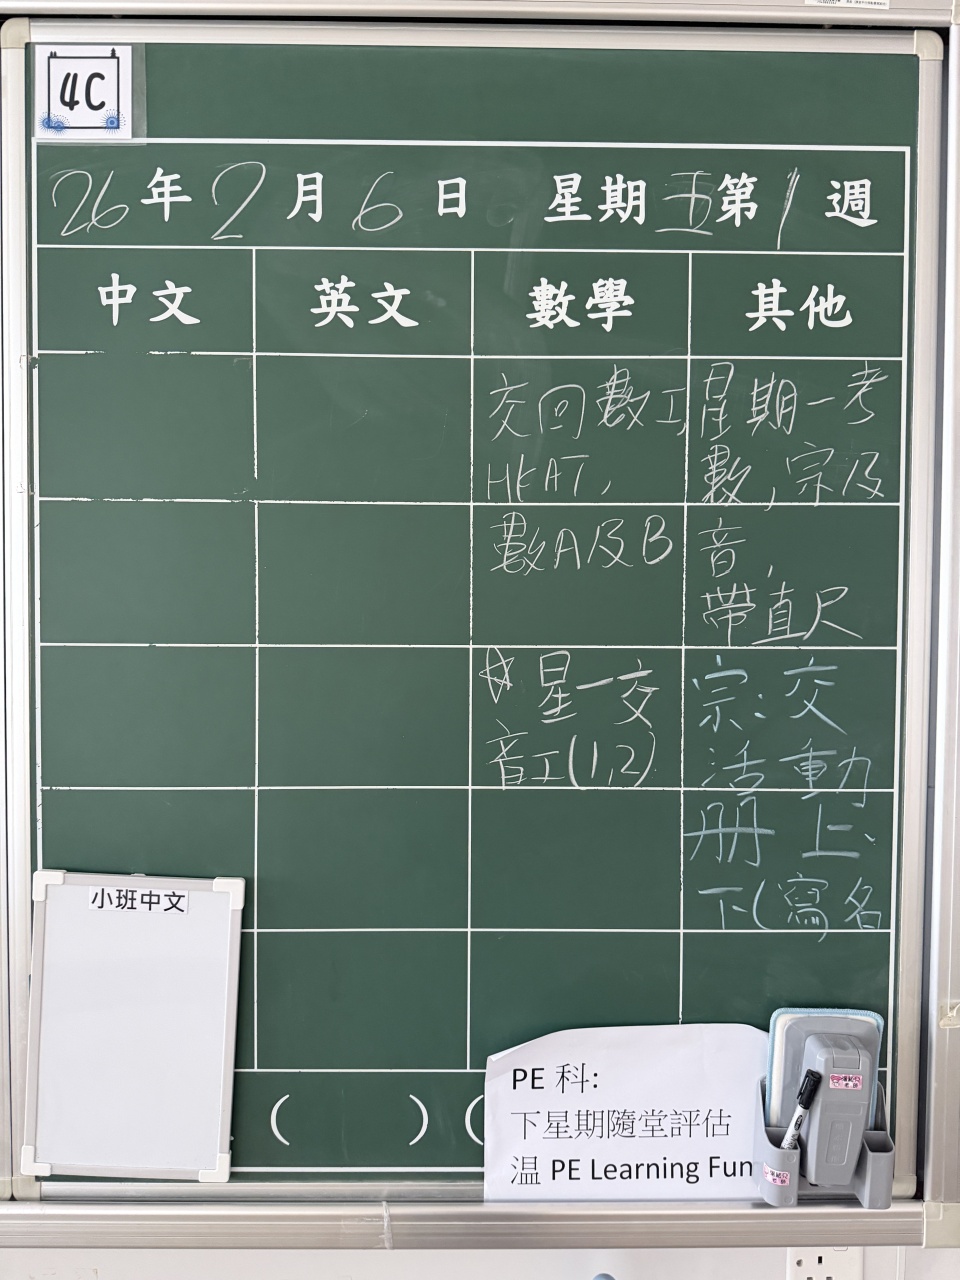 4C
26年2月6日 星期五第1週
中文 英文 數學 其他
交回數工,
HEAT,
數A及B
☆星一交
音工(1,2)
星期一考
數,宗及
音,
帶直尺
宗:交
活動
册上、
下(寫名
小班中文
( ) (
PE 科:
下星期隨堂評估
温 PE Learning Fun